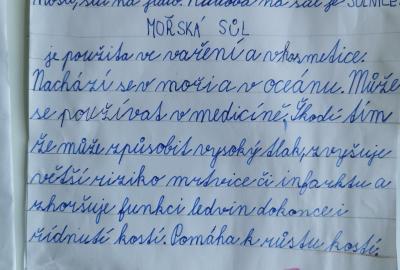 mosu, sůl na jídlo. Nádoba na sůl je SOLNIČKA.
MOŘSKÁ SŮL
je použita ve vaření a v kosmetice.
Nachází se v moři a v oceánu. Může
se používat v medicíně. Škodí tím
že může způsobit vysoký tlak, zvyšuje
větší riziko mrtvice či infarktu a
zhoršuje funkci ledvin dokonce i
řídnutí kostí. Pomáha k růstu kostí.